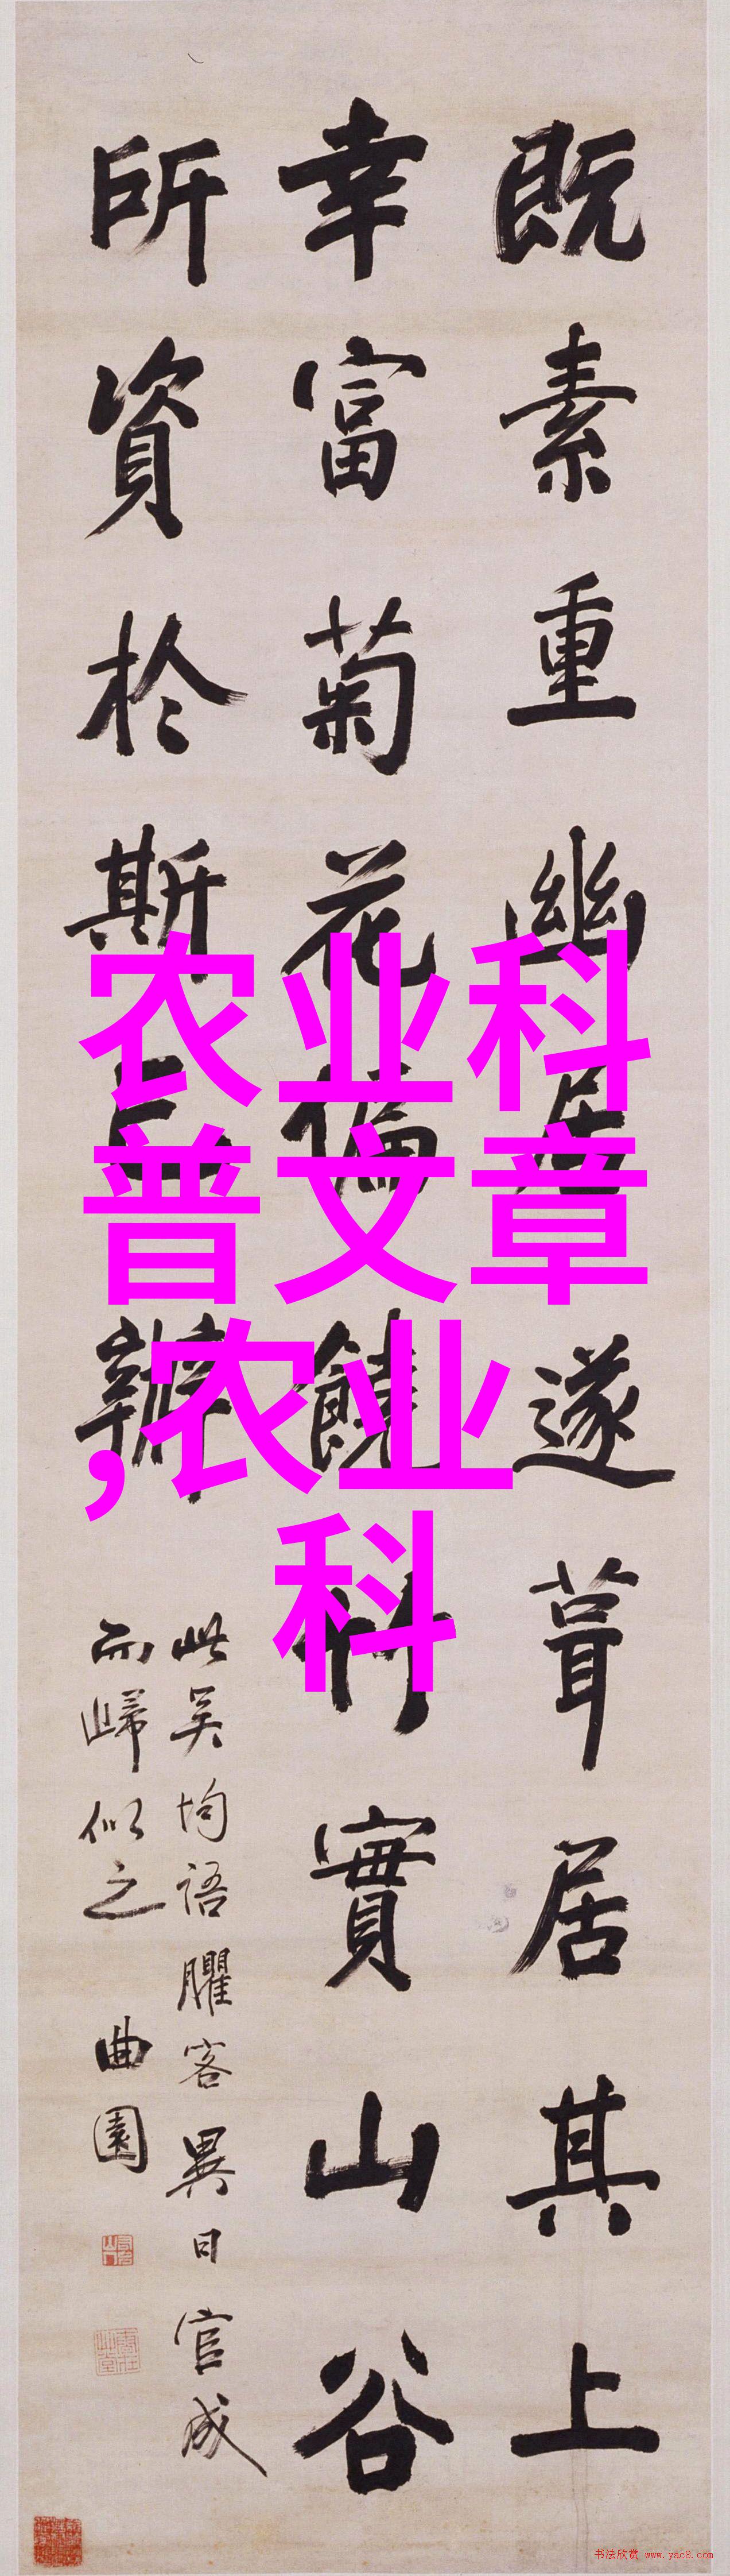 既素重幽居遂葺居其上
幸富菊花偏饒竹實山谷
所資於斯已辦
此吴均語臞客異日官成
而歸似之 曲園
农业科
普文章
,农业
科
书法欣赏 www.yac8.com